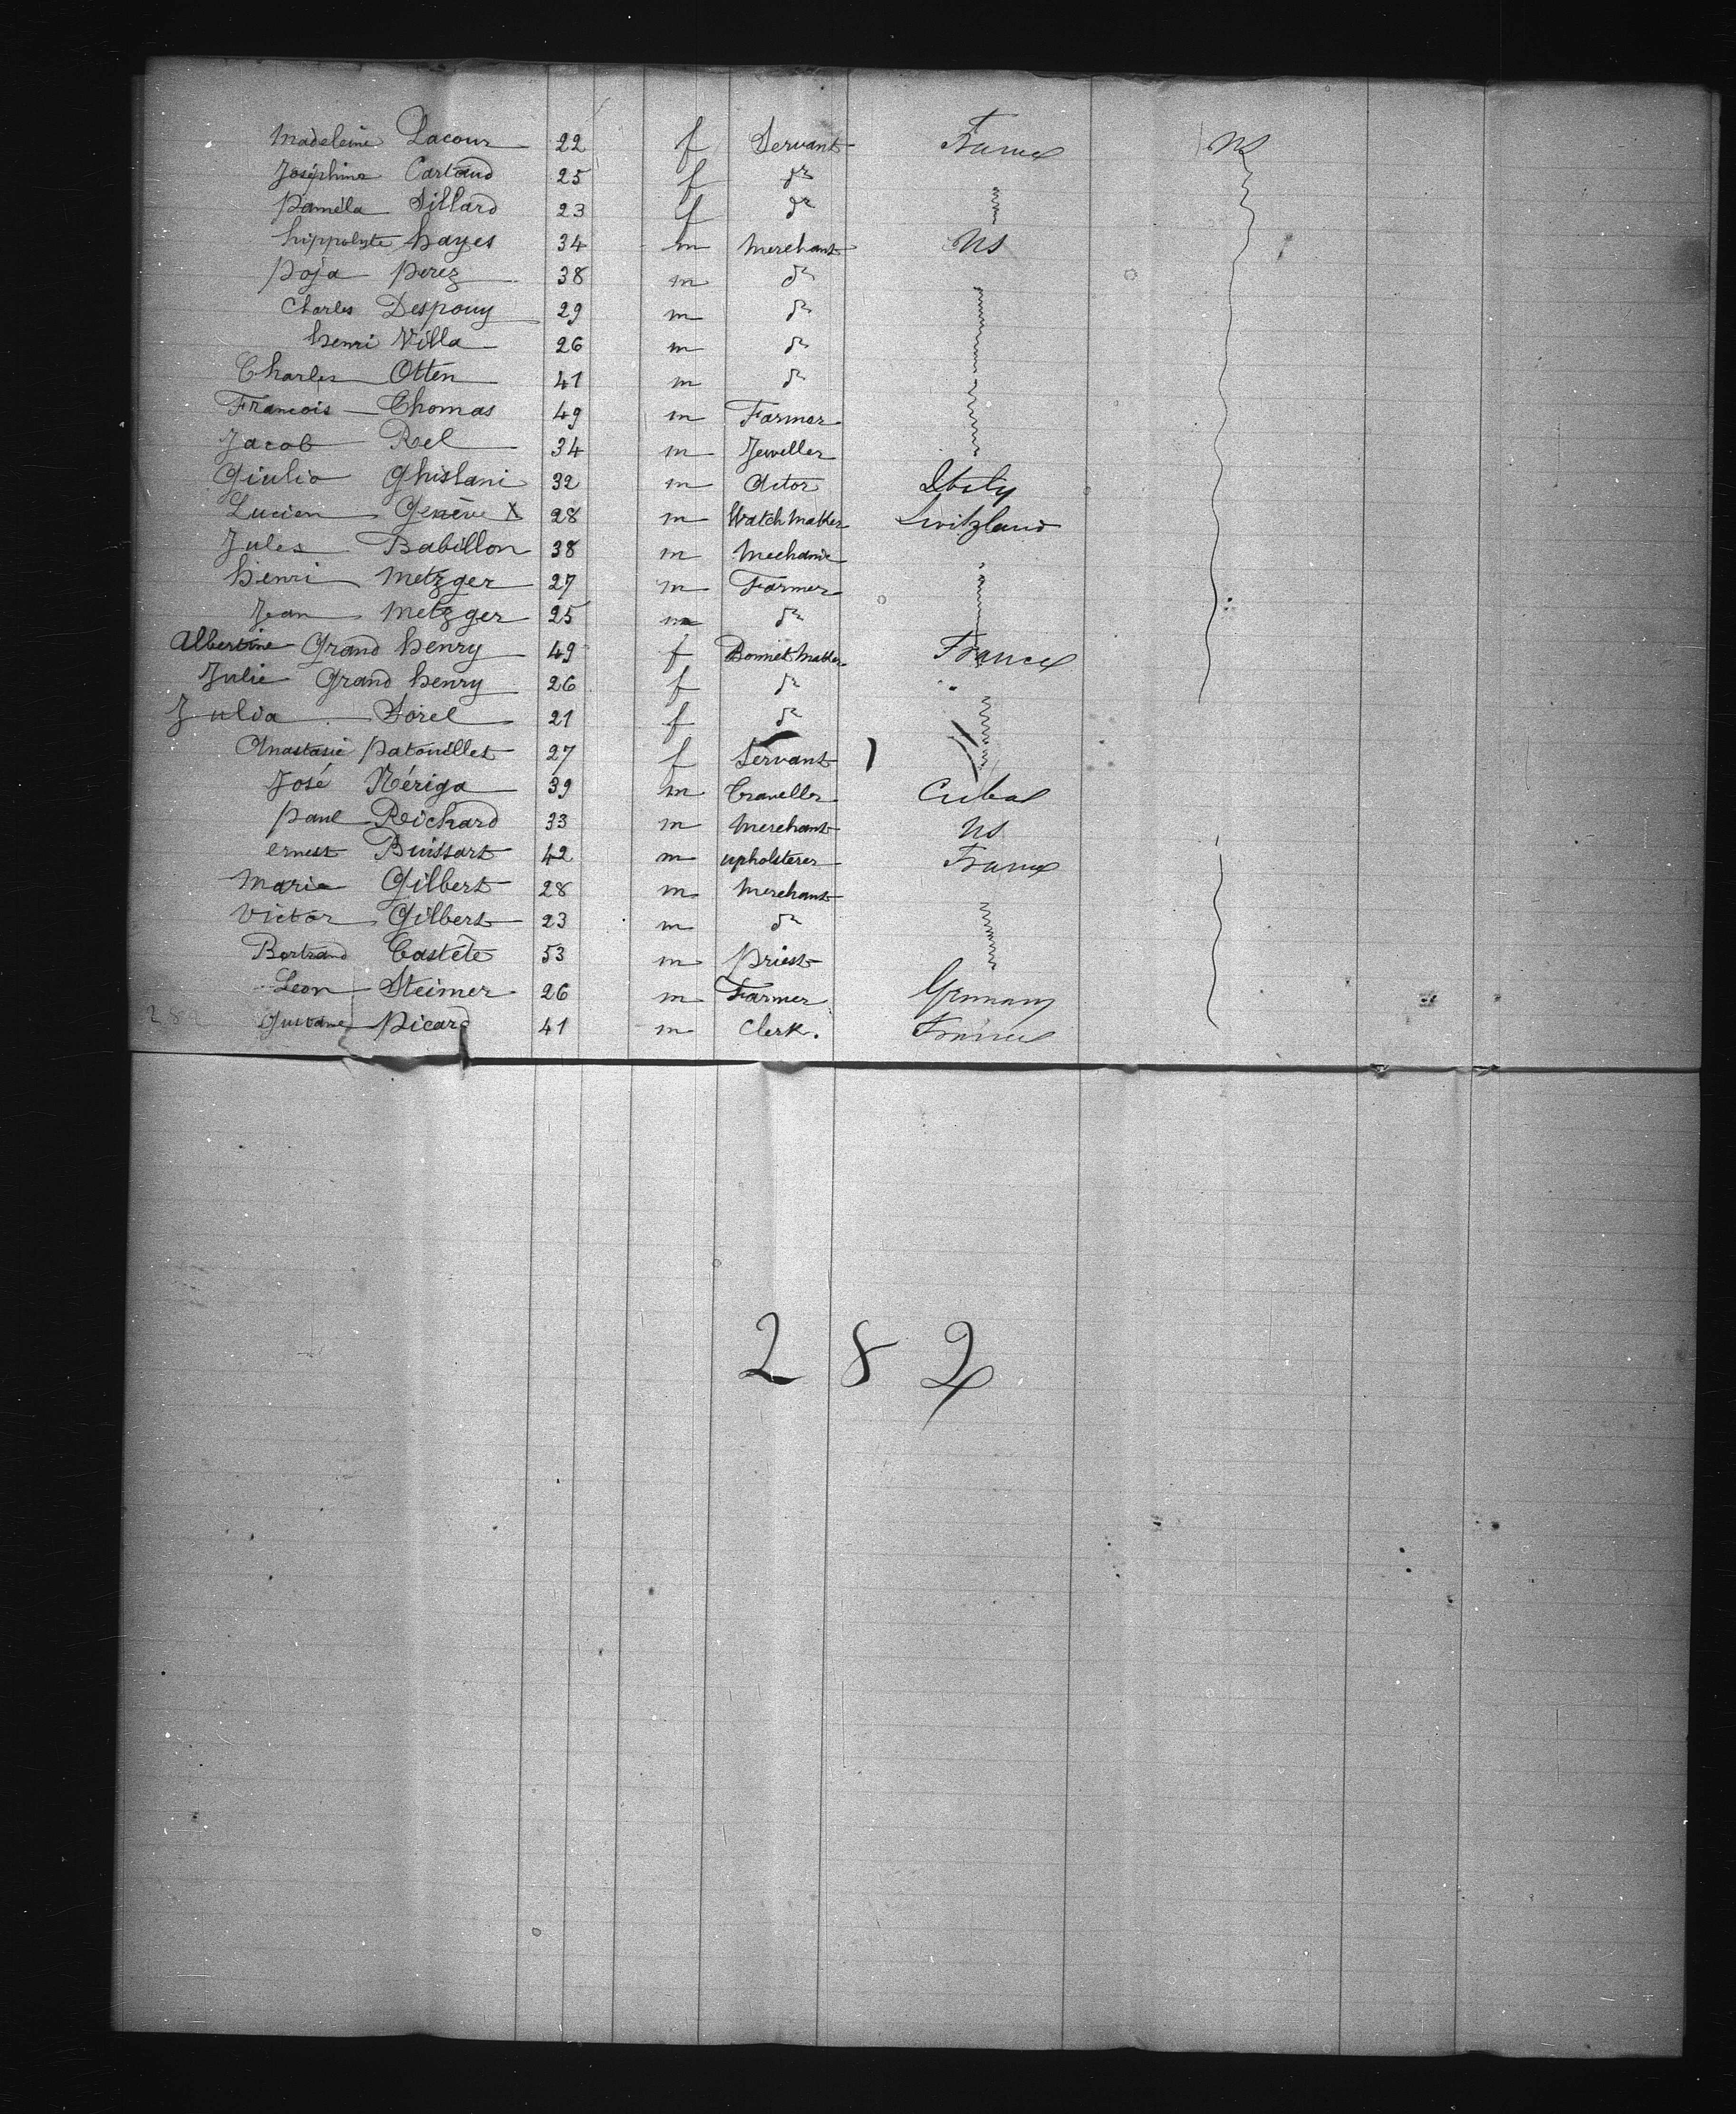 Madeleine Lacour 22 f Servant France US
Joséphine Cartaud 25 f do
Paméla Sillard 23 f do
hippolyte hayes 34 m Merchant US
Poja perez 38 m do
Charles Despouy 29 m do
henri Villa 26 m do
Charles Otten 41 m do
Francois Thomas 49 m Farmer
Jacob Rel 34 m Jeweller
Giulio Ghislani 32 m Actor Italy
Lucien Genève X 28 m Watch Maker Switzland
Jules Babillon 38 m Mechanic
henri Metzger 27 m Farmer
Jean Metzger 25 m do
Albertine Grand henry 49 f Bonnet Maker France
Julie Grand henry 26 f do
Julia Sorel 21 f do
Anastasie patouillet 27 f Servant
José Nériga 39 m Traveller Cuba
paul Reichard 33 m Merchant US
ernest Buissart 42 m upholsterer France
Marie Gilbert 28 m Merchant
Victor Gilbert 23 m do
Bertrand Castéte 53 m priest
Leon Steimer 26 m Farmer Germany
282 Gustave picard 41 m Clerk. France
282